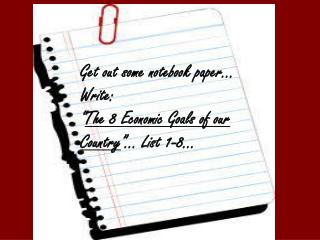 Get out some notebook paper...
Write:
"The 8 Economic Goals of our
Country"... List 1-8...